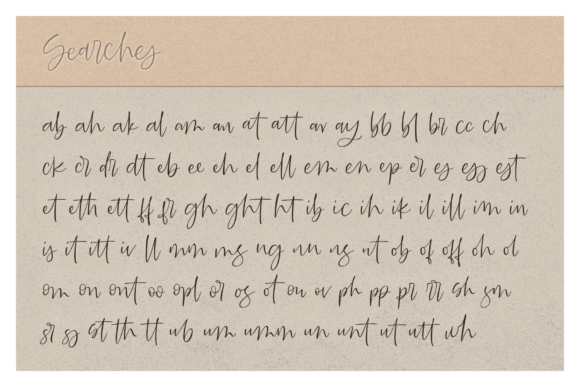 Searches
ab ah ak al am an at att av ay bb bl br cc ch
ck cr dr dt eb ee eh el ell em en ep er es ess est
et eth ett ff fr gh ght ht ib ic ih ik il ill im in
is it itt iv ll mm ms ng nn ns nt ob of off oh ol
om on ont oo opl or os ot ou ov ph pp pr rr sh sm
sr ss st th tt ub um umm un unt ut utt wh